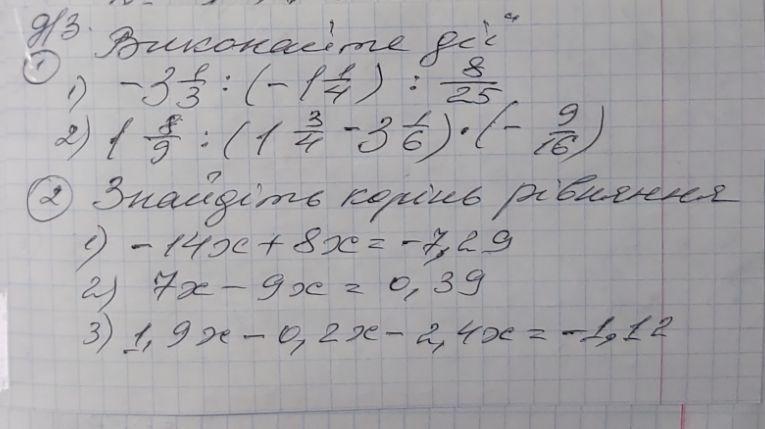 д/з. Виконайте дії
① 1) -3 1/3 : (-1 1/4) : 8/25
2) 1 8/9 : (1 3/4 - 3 1/6) · (- 9/16)
② Знайдіть корінь рівняння
1) -14x + 8x = -7,29
2) 7x - 9x = 0,39
3) 1,9x - 0,2x - 2,4x = -1,12